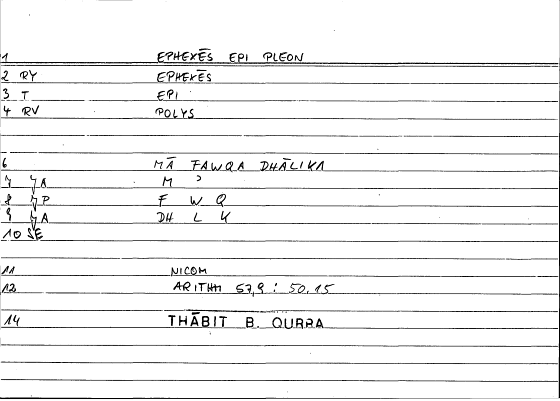 1 EPHEXĒS EPI PLEON
2 RY EPHEXĒS
3 T EPI
4 RV POLYS
6 MĀ FAWQA DHĀLIKA
7 A M ʾ
8 P F W Q
9 A DH L K
10 SE
11 NICOM
12 ARITHM 57,9 : 50,15
14 THĀBIT B. QURRA